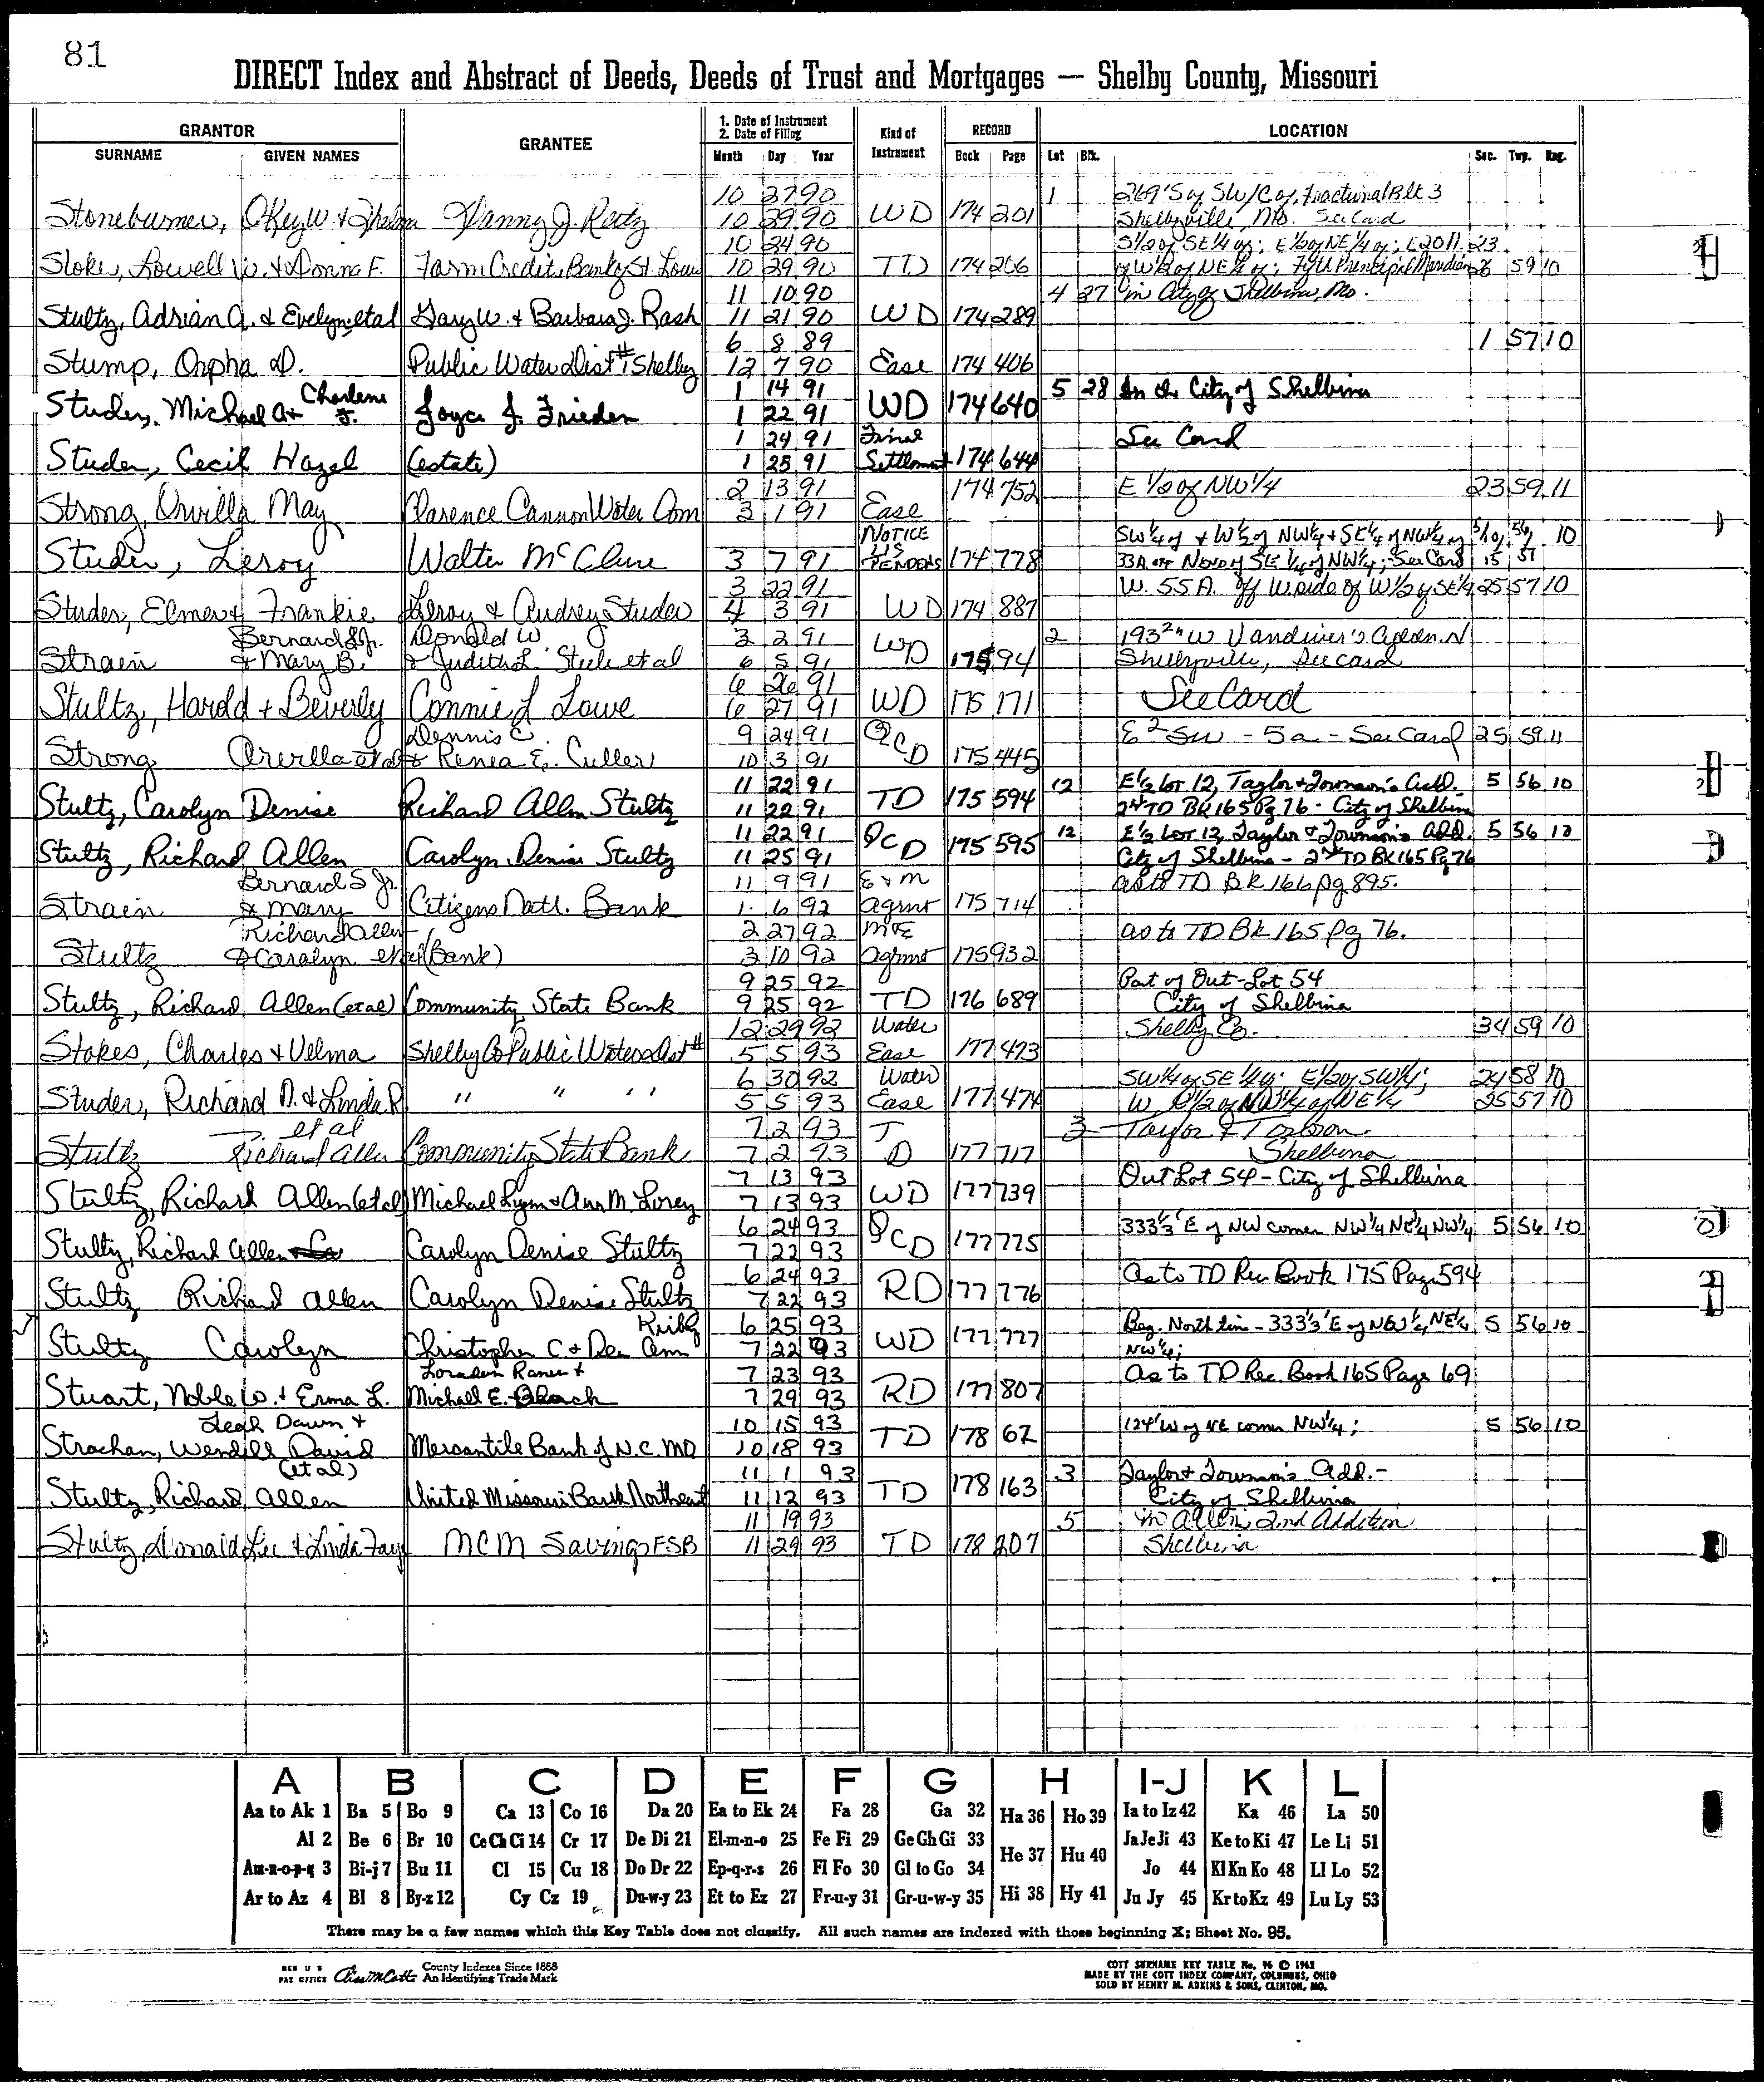 81
DIRECT Index and Abstract of Deeds, Deeds of Trust and Mortgages — Shelby County, Missouri
GRANTOR GRANTEE 1. Date of Instrument 2. Date of Filing Kind of Instrument RECORD LOCATION
SURNAME GIVEN NAMES Month Day Year Book Page Lot Blk. Sec. Twp. Rng.
10 27 90 1 269' S of SW/C of Fractional Blk 3
Stoneburner, Okey W. & Thelma Danny J. Reitz 10 29 90 WD 174 201 Shelbyville, Mo. See Card
10 24 90 S1/2 of SE1/4 of; E1/2 of NE1/4 of; E20 11 23
Stokes, Lowell W. & Donna F. Farm Credit Bank of St. Louis 10 29 90 TD 174 206 of W1/2 of NE1/4 of; Fifth Principal Meridian 26 59 10
11 10 90 4 27 in City of Shelbina, Mo.
Stultz, Adrian A. & Evelyn, etal Gary W. & Barbara J. Rash 11 21 90 WD 174 289
6 8 89 1 57 10
Stump, Orpha D. Public Water Dist #1 Shelby 12 7 90 Ease 174 406
Charlene 1 14 91 5 28 In the City of Shelbina
Studer, Michael A & J. Joyce J. Frieden 1 22 91 WD 174 640
1 24 91 Final See Card
Studer, Cecil Hazel (estate) 1 25 91 Settlement 174 644
2 13 91 174 752 E 1/2 of NW 1/4 23 59 11
Strong, Orvilla May Clarence Cannon Water Com 3 1 91 Ease
NOTICE SW 1/4 of & W 1/2 of NW 1/4 & SE 1/4 of NW 1/4 of 10
Studer, Leroy Walter McClure 3 7 91 LIS PENDENS 174 778 33A off No end of SE 1/4 of NW 1/4; See Card 15 57
3 22 91 W. 55 A. off W. side of W 1/2 of SE 1/4 25 57 10
Studer, Elmer & Frankie Leroy & Audrey Studer 4 3 91 WD 174 887
Bernard S Jr. Donald W 3 2 91 2 W Vandiver's Adden. N
Strain & Mary B. & Judith L. Steele et al 6 5 91 WD 175 94 Shelbyville, See card
6 26 91
Stultz, Harold & Beverly Connie L Lowe 6 27 91 WD 175 171 See Card
Dennis C 9 24 91 E 2 SW - 5a - See Card 25 59 11
Strong Orvilla et al & Renea E. Culler 10 3 91 QCD 175 445
11 22 91 12 E 1/2 Lot 12, Taylor & Towson's Add. 5 56 10
Stultz, Carolyn Denise Richard Allen Stultz 11 22 91 TD 175 594 2nd TD BK 165 Pg 76 - City of Shelbina
11 22 91 12 E 1/2 Lot 12, Taylor & Towson's Add. 5 56 10
Stultz, Richard Allen Carolyn Denise Stultz 11 25 91 QCD 175 595 City of Shelbina - 2nd TD BK 165 Pg 76
Bernard S Jr. 11 9 91 E & M as to TD BK 166 pg 895.
Strain & Mary Citizens Natl. Bank 1 6 92 agrmt 175 714
Richard Allen 2 27 92 as to TD Bk 165 pg 76.
Stultz & Carolyn etal (Bank) 3 10 92 agrmt 175 932
9 25 92 Part of Out-Lot 54
Stultz, Richard Allen (et al) Community State Bank 9 25 92 TD 176 689 City of Shelbina
12 29 92 Water Shelby Co. 34 59 10
Stokes, Charles & Velma Shelby Co Public Water Dist # 5 5 93 Ease 177 473
6 30 92 Water SW 1/4 of SE 1/4 of; E 1/2 of SW 1/4; 24 58 10
Studer, Richard D. & Linda R " " " 5 5 93 Ease 177 474 W 1/2 of NW 1/4 of NE 1/4 25 57 10
et al 7 2 93 T 3 Taylor &
Stultz Richard Allen Community State Bank 7 2 93 D 177 717 Shelbina
7 13 93 Out Lot 54 - City of Shelbina
Stultz, Richard Allen (et al) Michael Lynn & Ann M. Lorey 7 13 93 WD 177 739
6 24 93 333 1/3' E of NW corner NW 1/4 NE 1/4 NW 1/4 5 56 10
Stultz, Richard Allen Carolyn Denise Stultz 7 22 93 QCD 177 775
6 24 93 As to TD Rec Book 175 Page 594
Stultz Richard Allen Carolyn Denise Stultz 7 22 93 RD 177 776
Kirby 6 25 93 Beg. North line - 333 1/3' E of NW 1/4, NE 1/4 5 56 10
Stultz Carolyn Christopher C & Dee Ann 7 22 93 WD 177 777 NW 1/4;
Ranee & 7 23 93 As to TD Rec. Book 165 Page 69
Stuart, Noble W. & Erma L. Michael E. 7 29 93 RD 177 807
Leah Dawn & 10 15 93 124' W of NE corner NW 1/4; 5 56 10
Strachan, Wendell David Mercantile Bank of N.C. MO 10 18 93 TD 178 62
(et al) 11 1 93 3 Taylor & Towson's Add. -
Stultz, Richard Allen United Missouri Bank Northeast 11 12 93 TD 178 163 City of Shelbina
11 19 93 5 in Allen 2nd Addition
Stultz, Donald Lee & Linda Fay MCM Savings FSB 11 29 93 TD 178 207 Shelbina
A B C D E F G H I-J K L
Aa to Ak 1 Ba 5 Bo 9 Ca 13 Co 16 Da 20 Ea to Ek 24 Fa 28 Ga 32 Ha 36 Ho 39 Ia to Iz 42 Ka 46 La 50
Al 2 Be 6 Br 10 Ce Ch Ci 14 Cr 17 De Di 21 El-m-n-o 25 Fe Fi 29 Ge Gh Gi 33 He 37 Hu 40 Ja Je Ji 43 Ke to Ki 47 Le Li 51
Am-n-o-p-q 3 Bi-j 7 Bu 11 Cl 15 Cu 18 Do Dr 22 Ep-q-r-s 26 Fl Fo 30 Gl to Go 34 Jo 44 Kl Kn Ko 48 Ll Lo 52
Ar to Az 4 Bl 8 By-z 12 Cy Cz 19 Du-w-y 23 Et to Ez 27 Fr-u-y 31 Gr-u-w-y 35 Hi 38 Hy 41 Ju Jy 45 Kr to Kz 49 Lu Ly 53
There may be a few names which this Key Table does not classify. All such names are indexed with those beginning X; Sheet No. 95.
REG U S PAT OFFICE County Indexes Since 1888 An Identifying Trade Mark
COTT SURNAME KEY TABLE No. 96 © 1962
MADE BY THE COTT INDEX COMPANY, COLUMBUS, OHIO
SOLD BY HENRY M. ADKINS & SONS, CLINTON, MO.